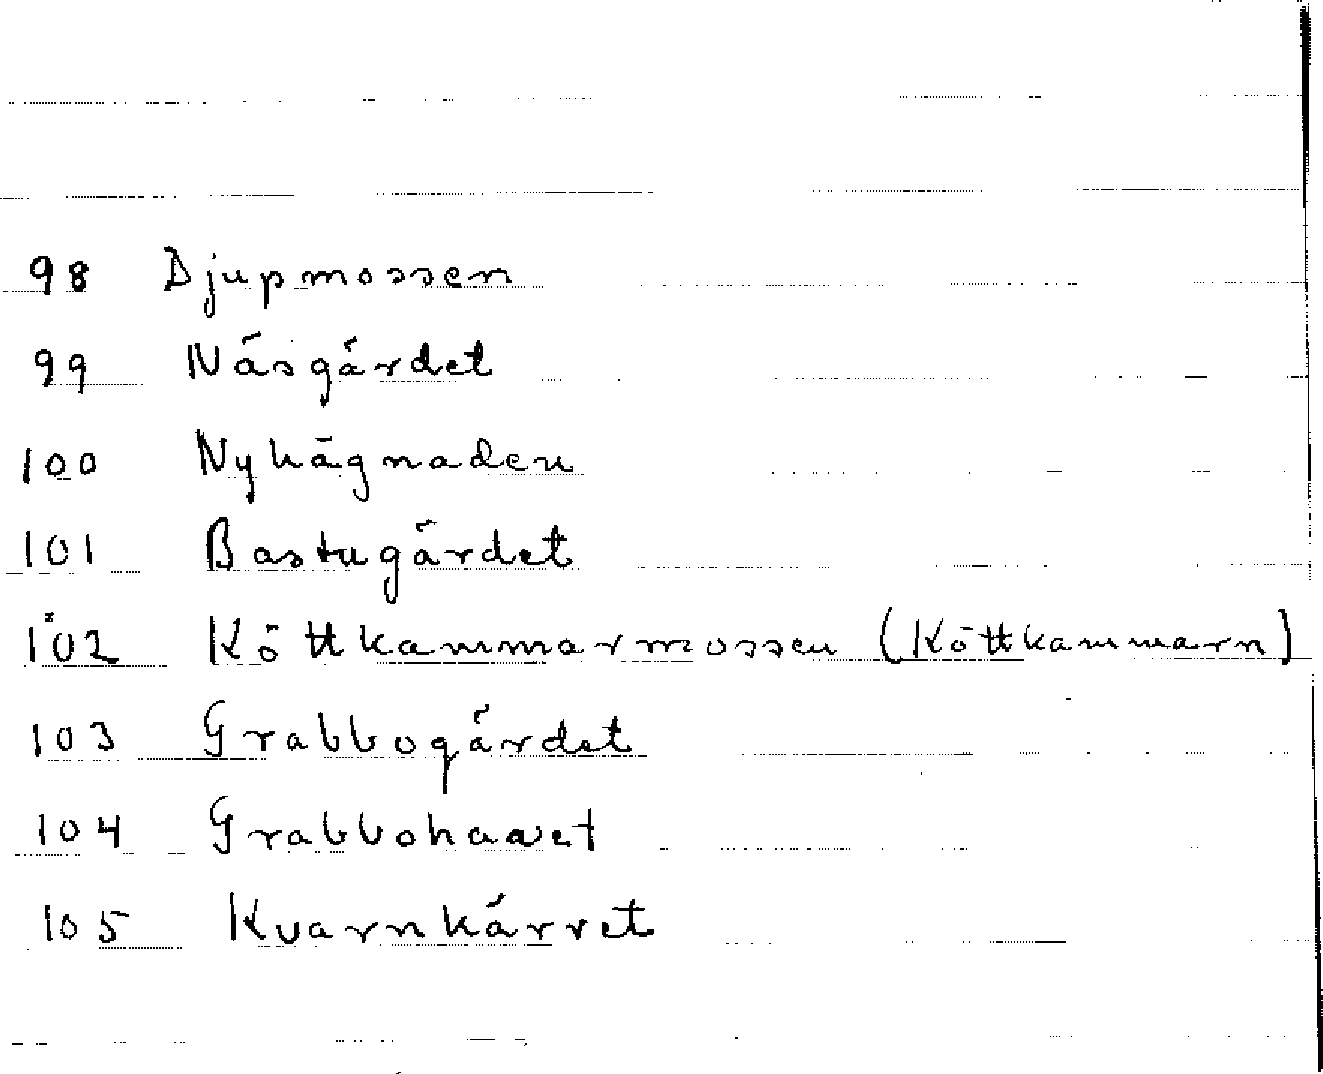 98 Djupmossen
99 Näsgärdet
100 Nyhägnaden
101 Bastugärdet
102 Köttkammarmossen (Köttkammarn)
103 Grabbogärdet
104 Grabbohavet
105 Kvarnkärret